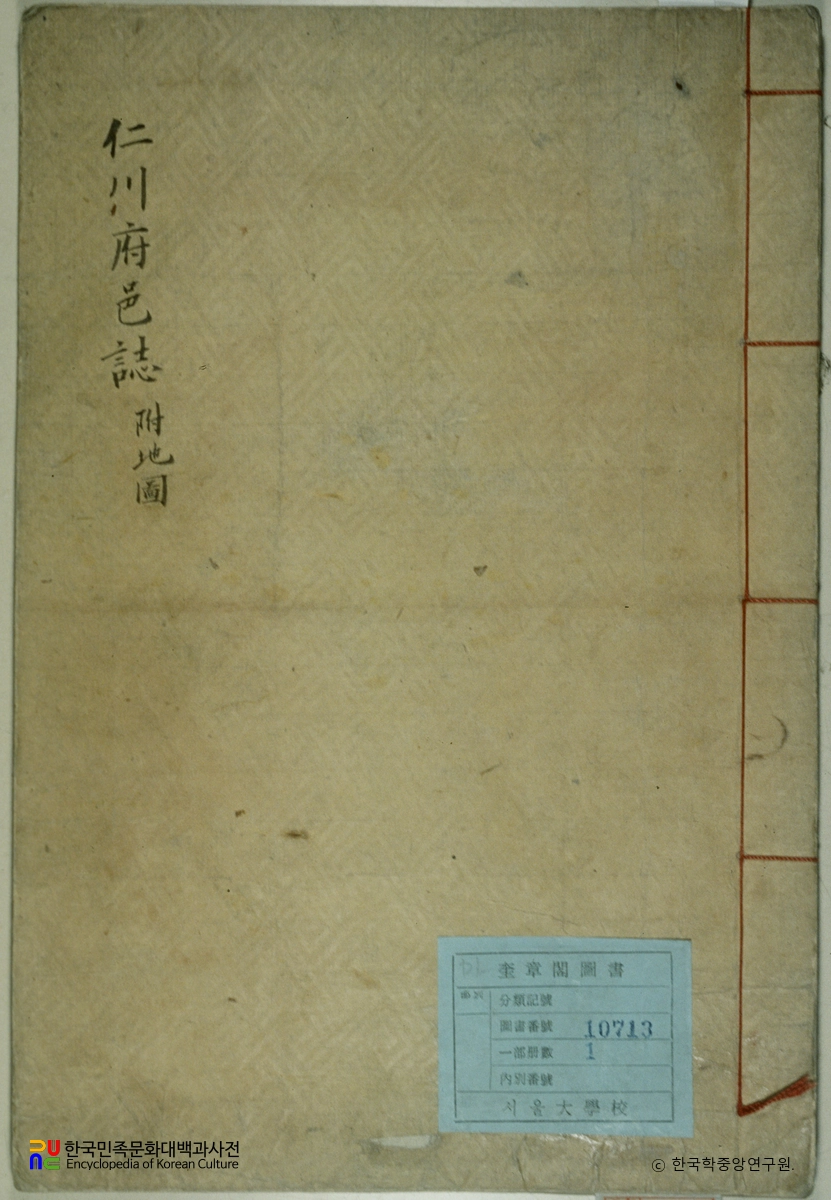 仁川府邑誌
附地圖
奎章閣圖書
分類記號
圖書番號 10713
一部册數 1
內別番號
서울大學校
한국민족문화대백과사전
Encyclopedia of Korean Culture
© 한국학중앙연구원.